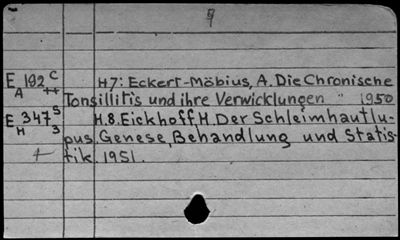 9
E 192 C H7: Eckert-Möbius, A. Die Chronische
A ++ Tonsillitis und ihre Verwicklungen " 1950
E 347 S H.8. Eickhoff, H. Der Schleimhautlu-
H 3 pus. Genese, Behandlung und Statis-
tik. 1951.